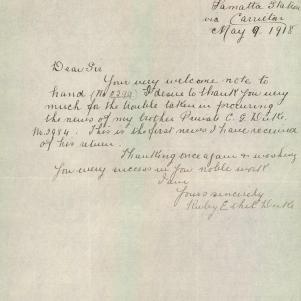 Tamatta Station
via Carrieton
May 9. 1918
Dear Sir
Your very welcome note to
hand (No 0299) I desire to thank you very
much for the trouble taken in procuring
the news of my brother Private C. J.
No. 2984. This is the first news I have received
of his return.
Thanking once again & wishing
you every success in your noble work
I am
Yours sincerely
Ruby Ethel